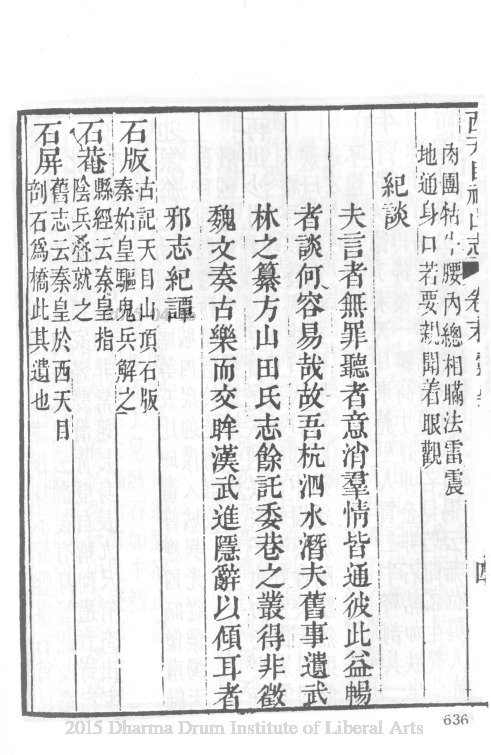 西天目祖山志
卷末
肉團牯牛腰內總相瞞法雷震
地通身口若要親聞着眼觀
紀談
夫言者無罪聽者意消羣情皆通彼此益暢
者談何容易哉故吾杭泗水潛夫舊事遺武
林之纂方山田氏志餘託委巷之叢得非徵
魏文奏古樂而交睫漢武進隱辭以傾耳者
邪志紀譚
石版古記天目山頂石版
秦始皇驅鬼兵解之
石菴縣經云秦皇指
陰兵叠就之
石屏舊志云秦皇於西天目
剖石爲橋此其遺也
2015 Dharma Drum Institute of Liberal Arts
636